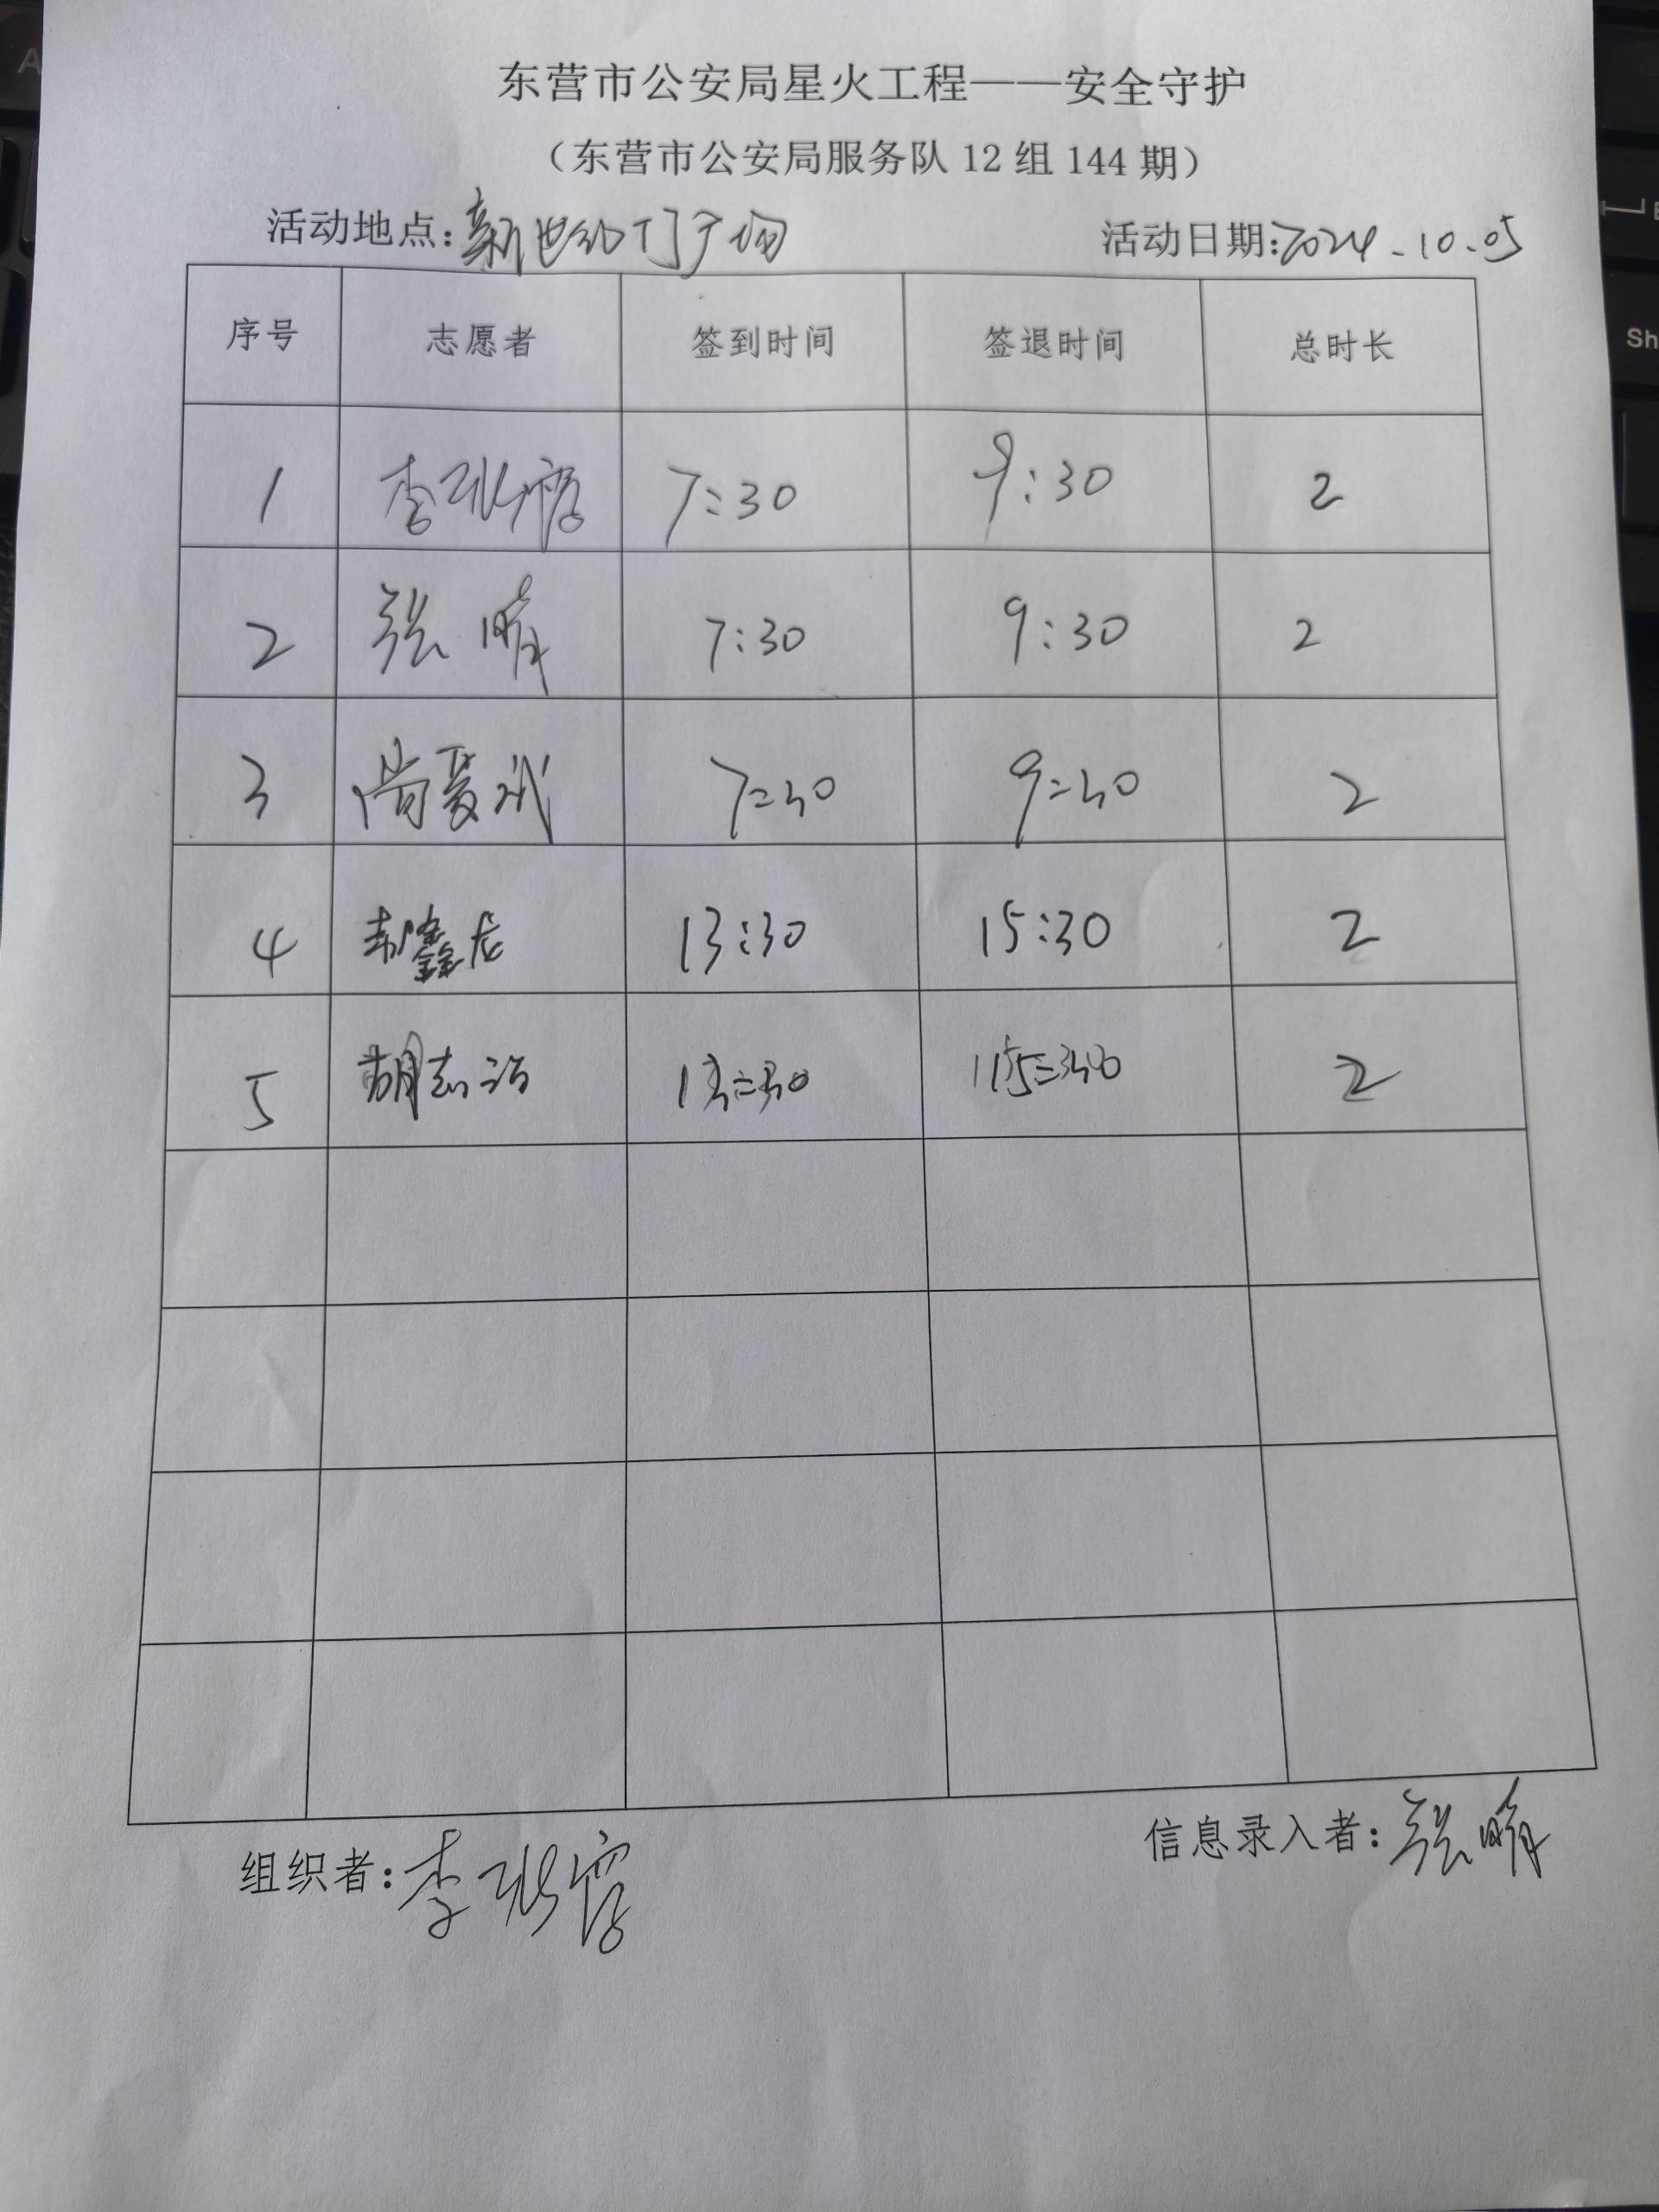 东营市公安局星火工程——安全守护
（东营市公安局服务队 12 组 144 期）
活动地点:新世纪门广场 活动日期:2024.10.05
序号 志愿者 签到时间 签退时间 总时长
1 李 7:30 9:30 2
2 张晴 7:30 9:30 2
3 尚爱武 7:30 9:30 2
4 鑫龙 13:30 15:30 2
5 胡志治 13:30 15:30 2
组织者:李 信息录入者:张晴